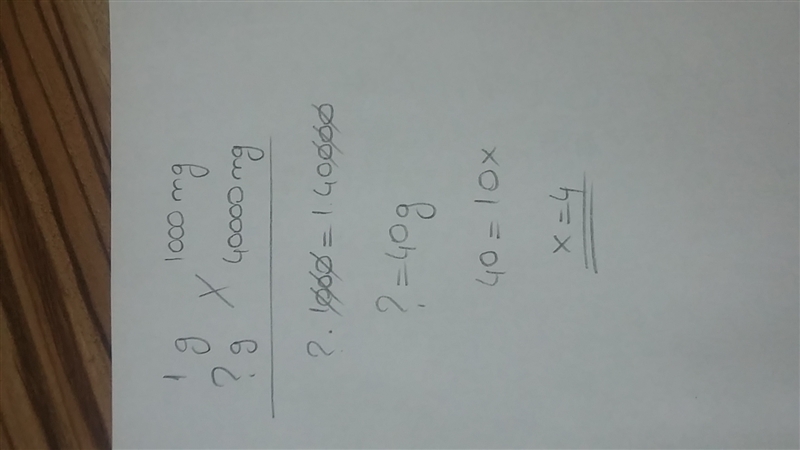 1 g 1000 mg
? g X 40000 mg
?. 1000 = 1.40000
? = 40g
40 = 10x
x = 4